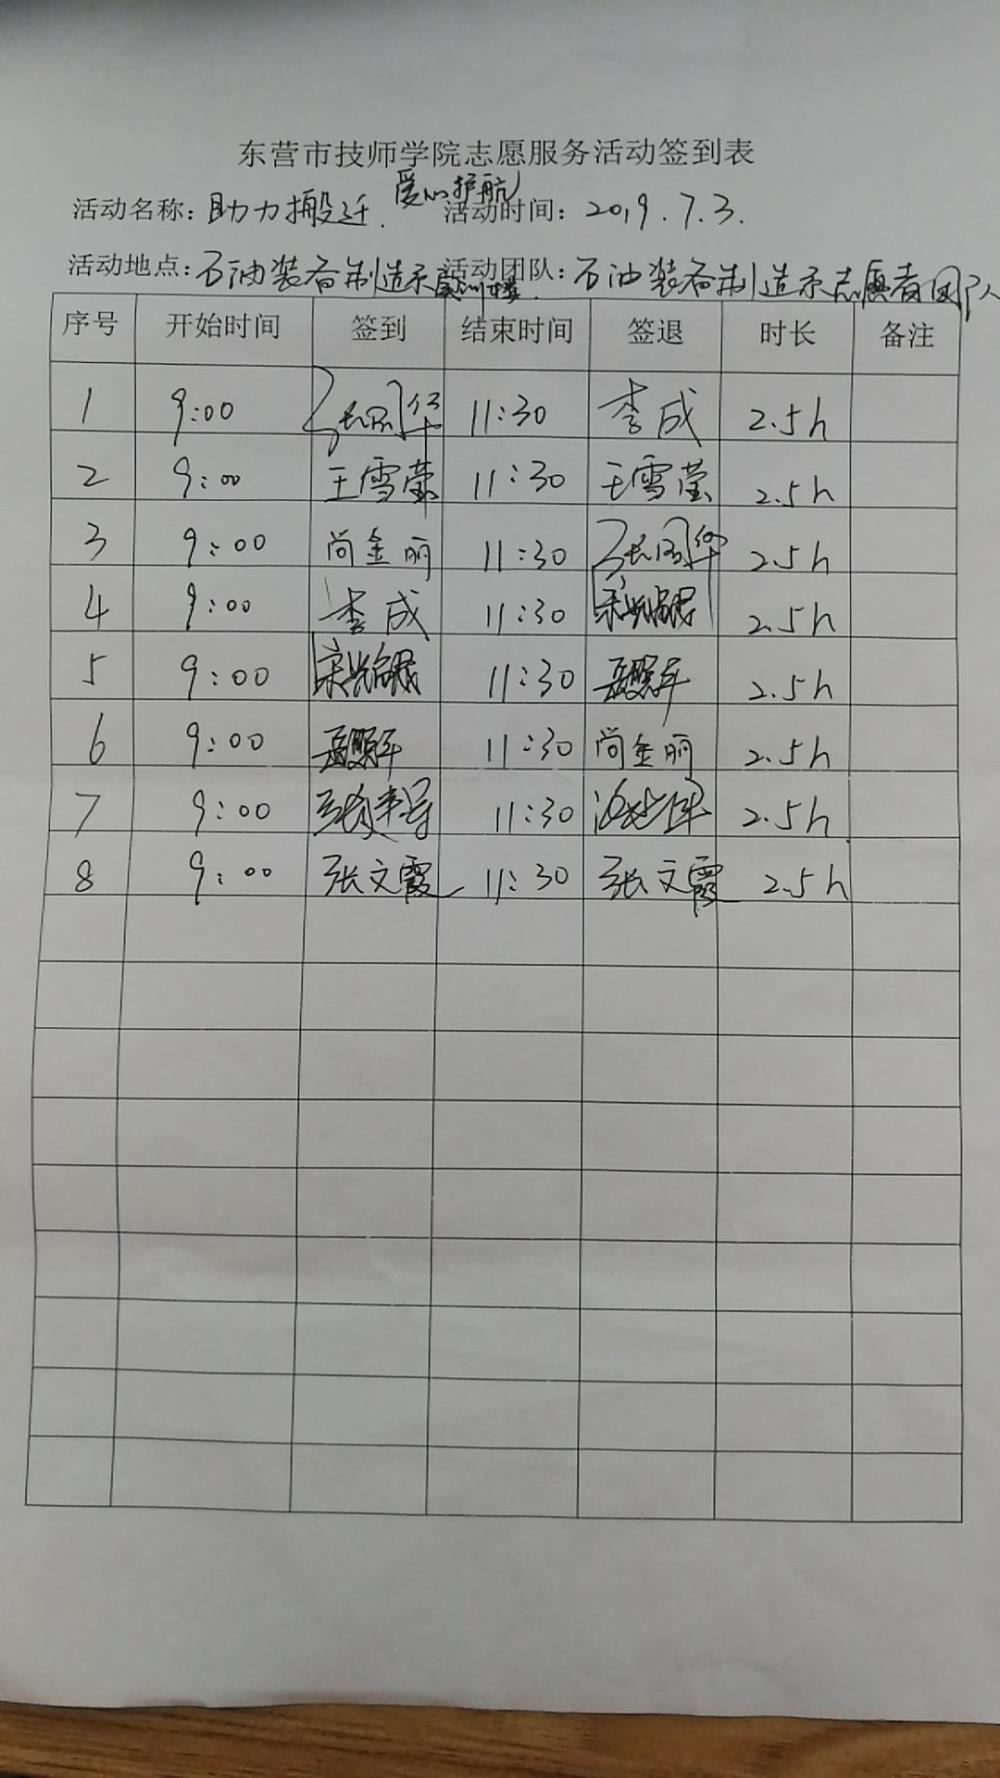 东营市技师学院志愿服务活动签到表
活动名称：助力搬迁.爱心护航 活动时间：2019.7.3.
活动地点：石油装备制造系实训楼. 活动团队：石油装备制造系志愿者团队
序号 开始时间 签到 结束时间 签退 时长 备注
1 9:00 11:30 李成 2.5h
2 9:00 王雪莹 11:30 王雪莹 2.5h
3 9:00 尚金丽 11:30 2.5h
4 9:00 李成 11:30 2.5h
5 9:00 11:30 2.5h
6 9:00 11:30 尚金丽 2.5h
7 9:00 11:30 2.5h
8 9:00 张文霞 11:30 张文霞 2.5h